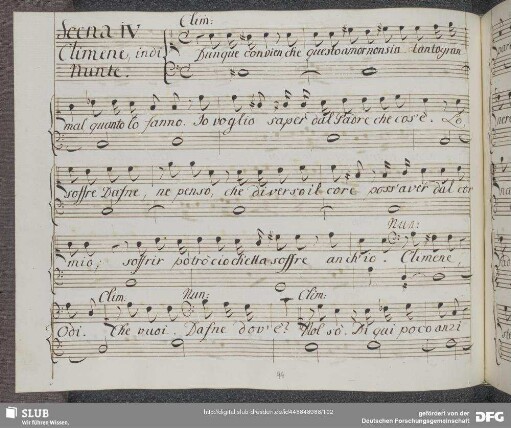 Scena IV
Climene, indi
Nunte.
Clim:
Dunque convien che questo amor non sia tanto gran
mal quanto lo fanno. Io voglio saper dal Padre che cos'è. Lo
soffre Dafne, ne penso, che diverso il core poss'aver dal cor
mio; soffrir potrò ciò ch'ella soffre anch'io.
Nun:
Climene,
Clim.
Nun:
Clim:
Odi. Che vuoi. Dafne dov'è? Nol sò. Di qui poco anzi
44
SLUB
Wir führen Wissen.
gefördert von der
Deutschen Forschungsgemeinschaft
DFG